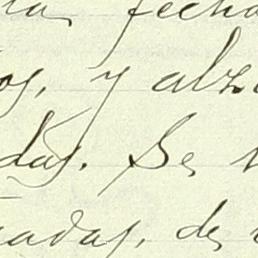 la fecha
os, y alza
das. Se
adas, de